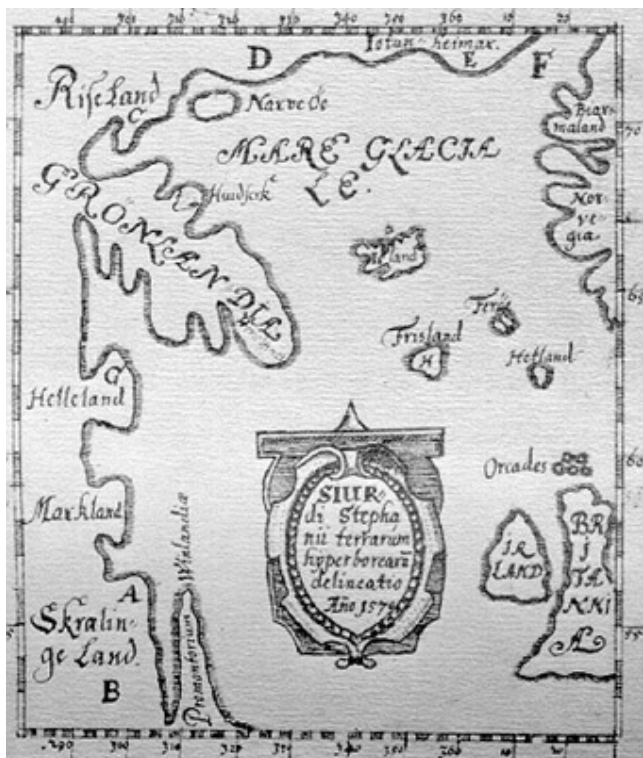 Iotun-heimar.
D
E
F
Riseland
C
Narve Oe
MARE GLACIA
LE.
Biar-
maland
70
GRÖNLANDIA
Nor-
ve-
gia
Island
Frisland
H
Hetland
G
Helleland
Orcades
60
Markland
Promontorium Winlandiæ
SIUR-
di Stepha
nii terrarum
hyperborearū
delineatio
Año 1579
IR
LAND
BR
I
TA
NNI
Æ
A
Skralin-
ge Land.
B
55
290
300
310